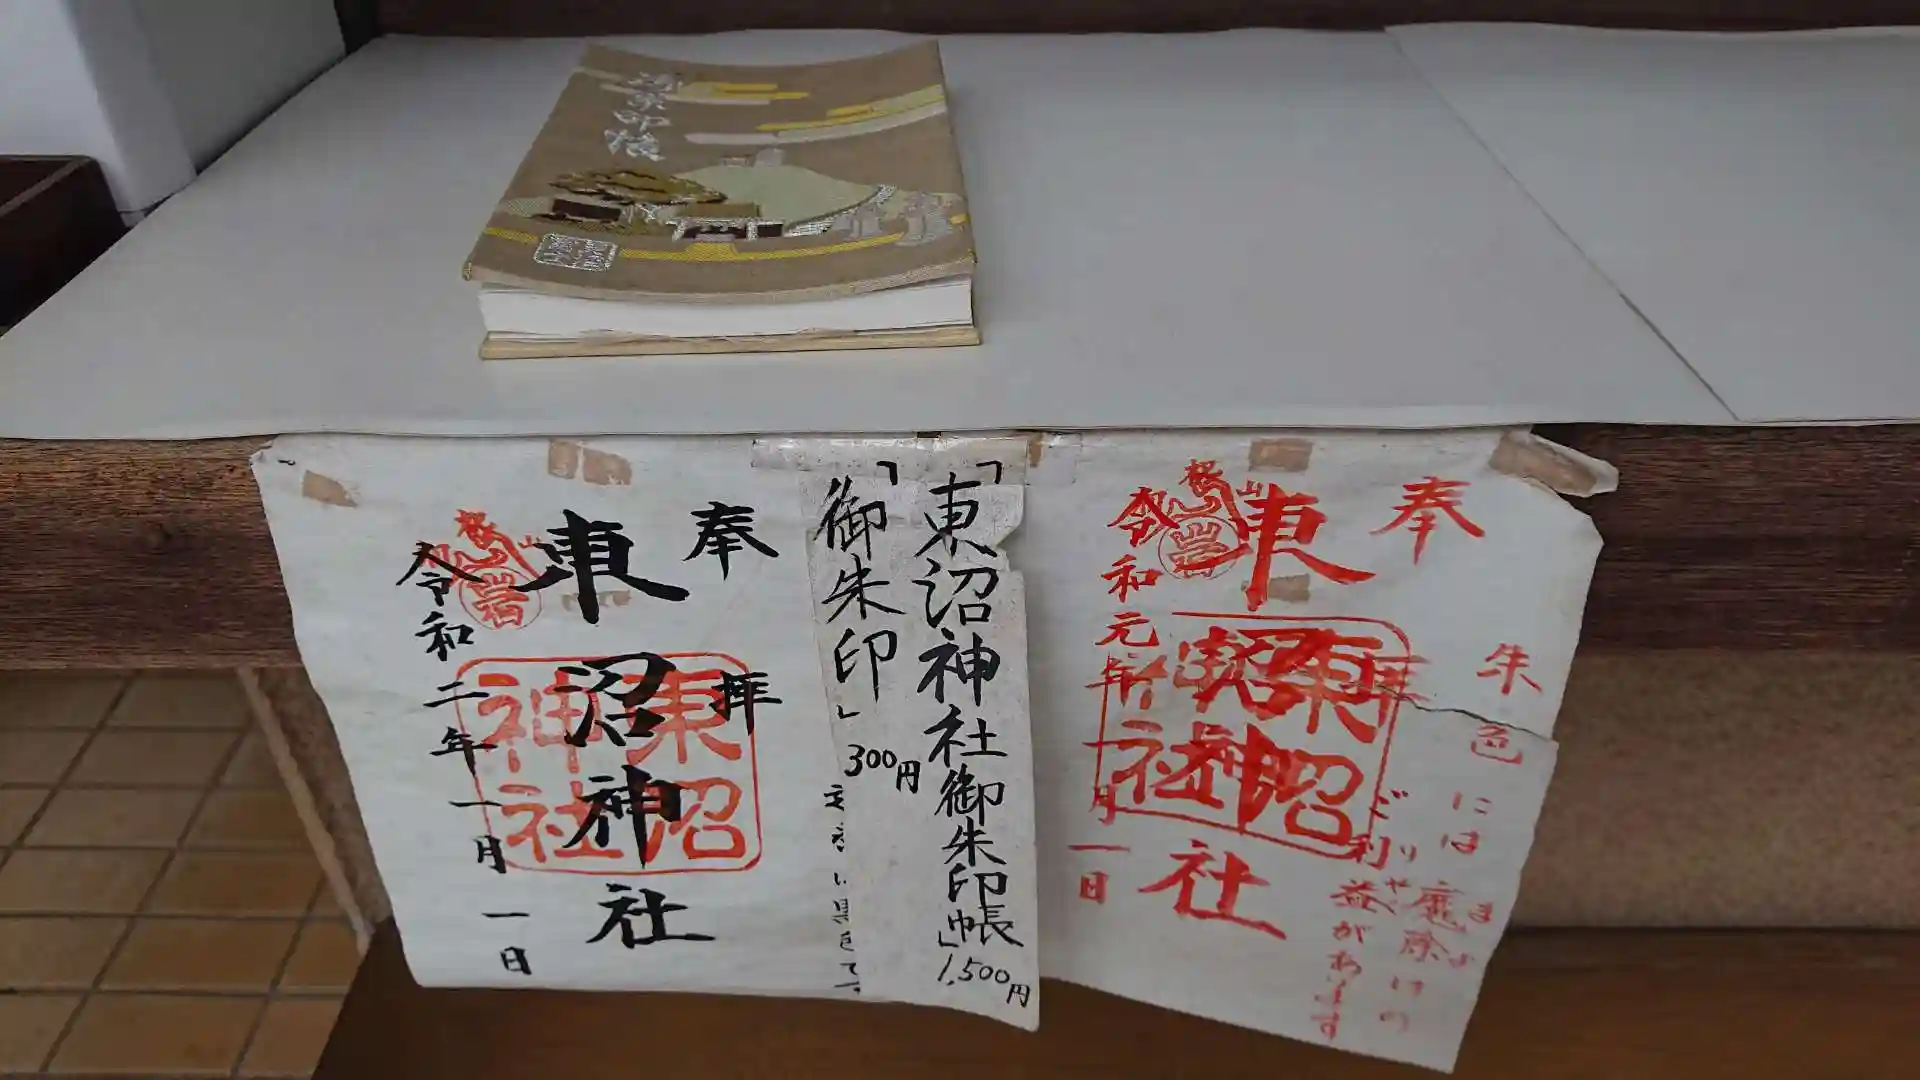 御朱印帳
朱色
には魔除けの
まよ
ご利益があります
りやく
奉拝
東沼神社
東沼神社
令和元年一月一日
「東沼神社御朱印帳」1,500円
「御朱印」300円
奉拝
東沼神社
東沼神社
令和二年一月一日